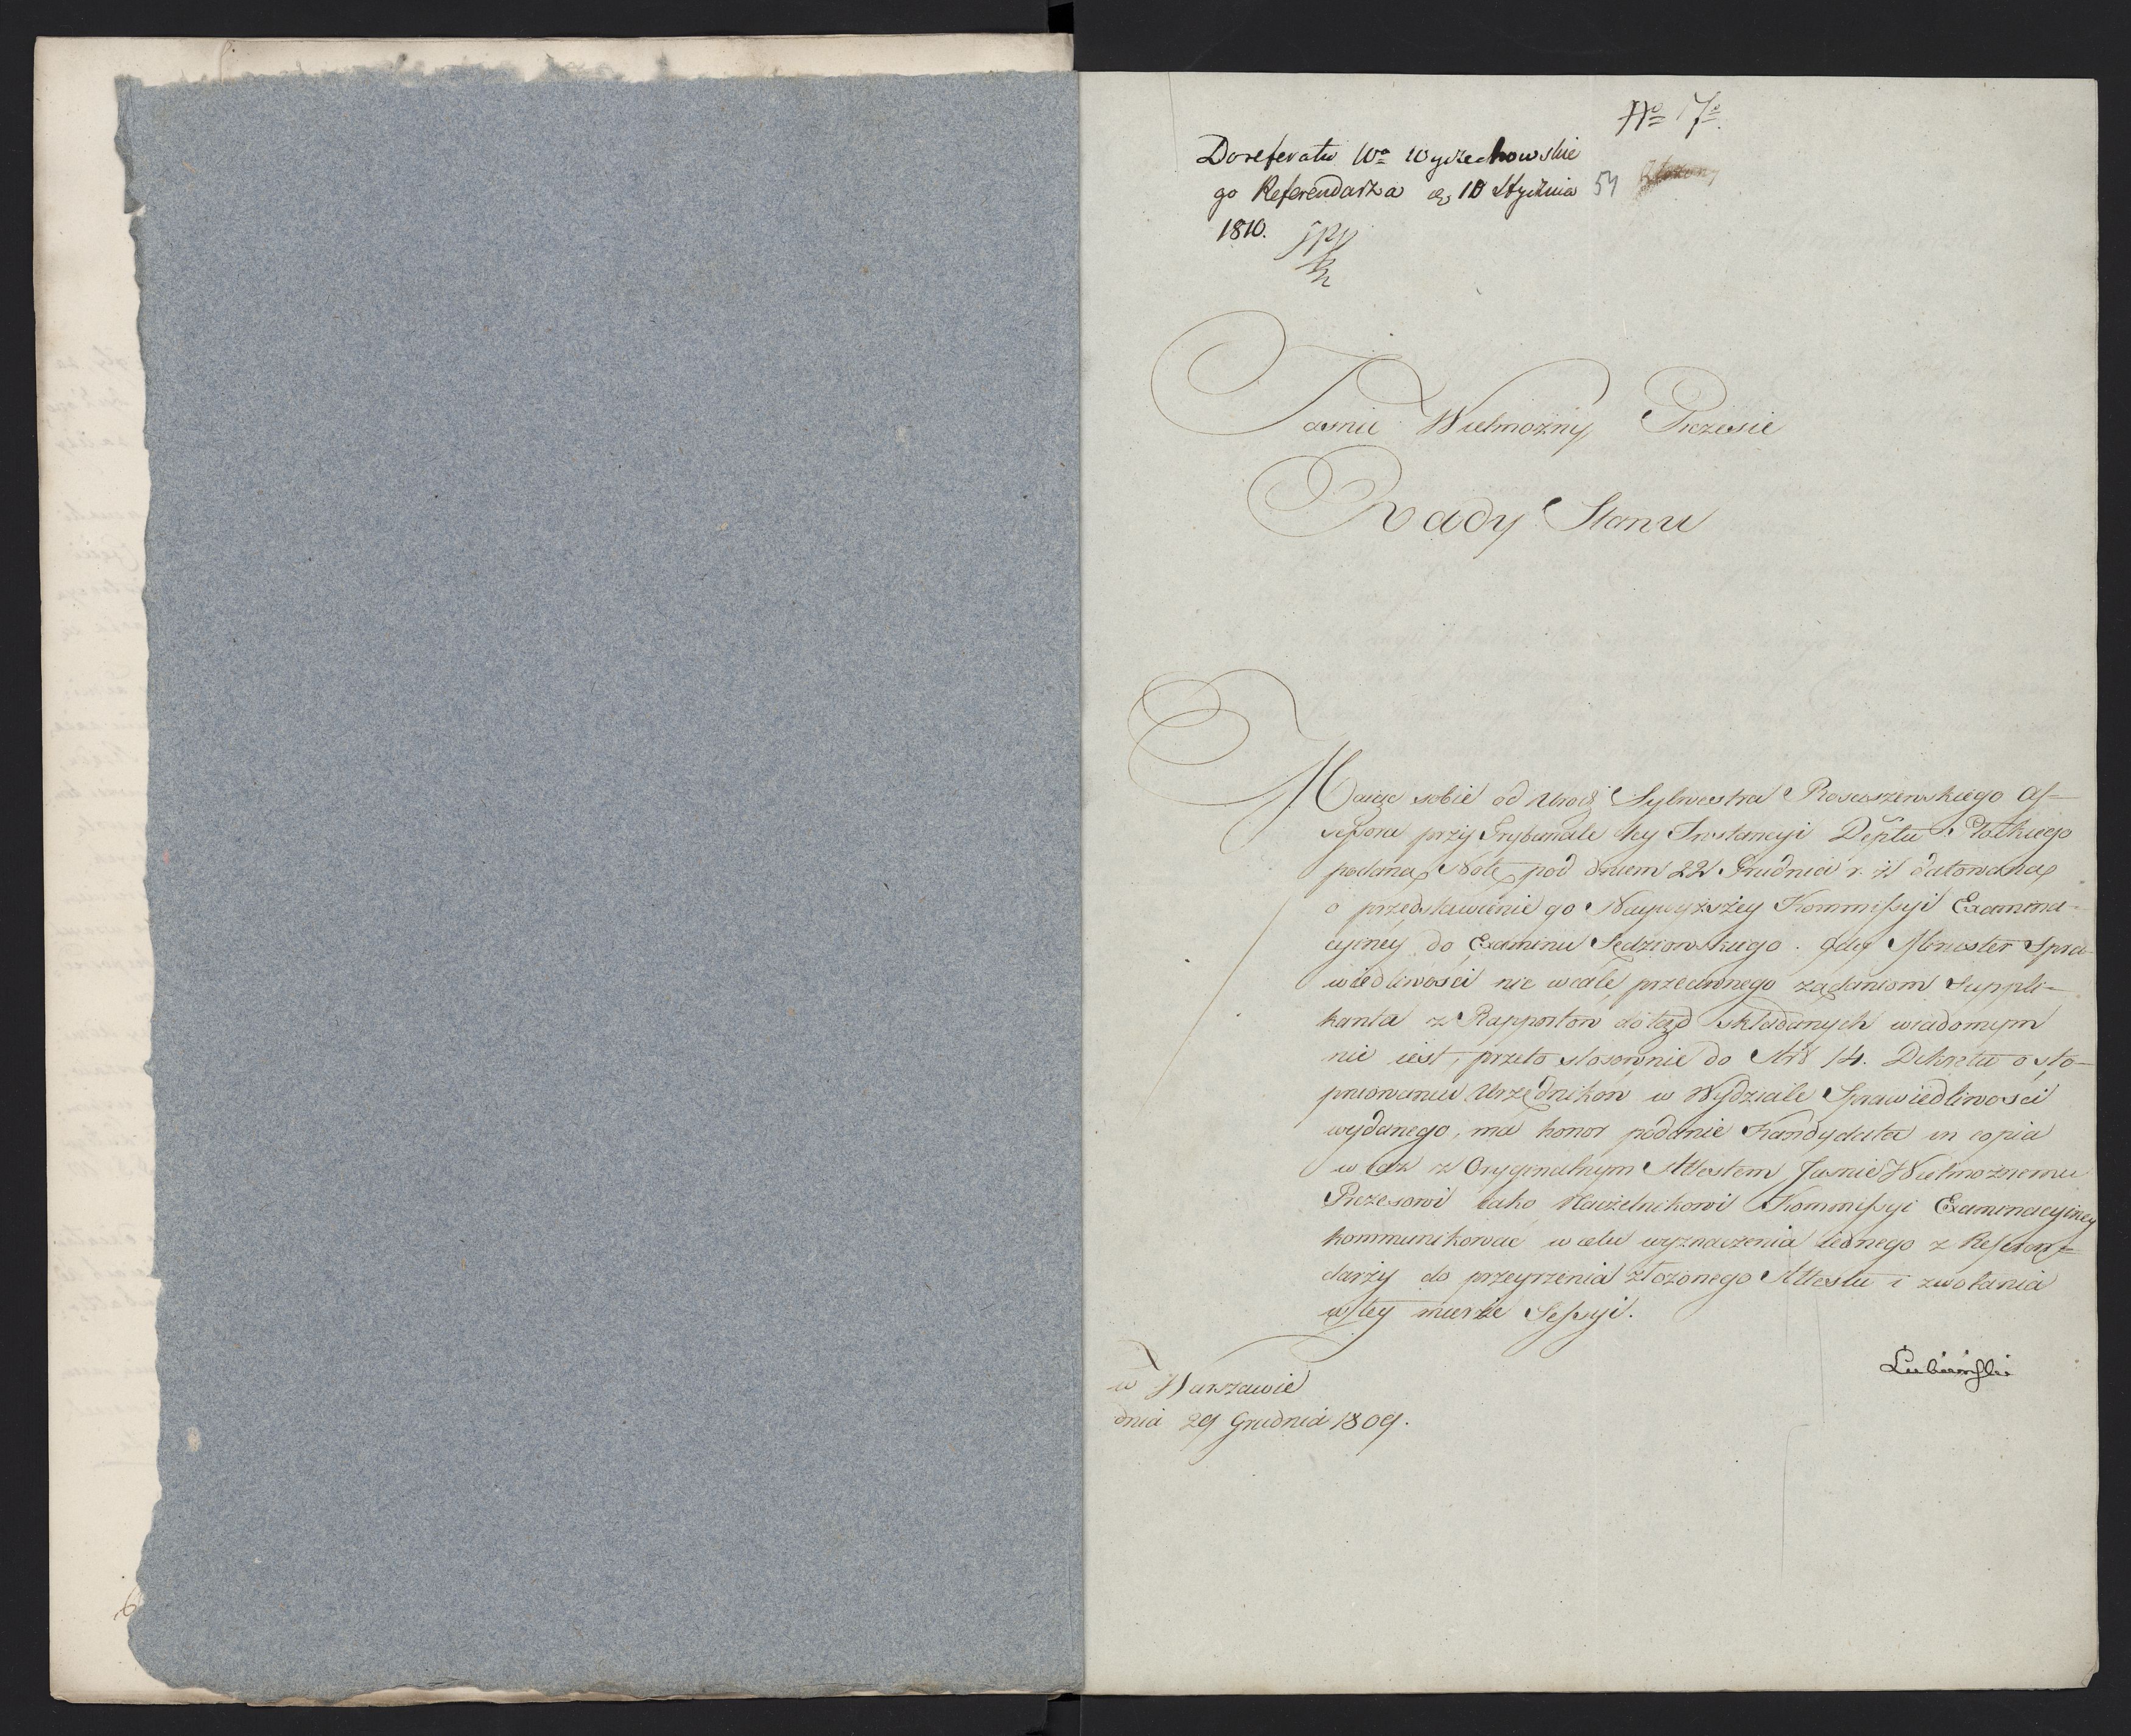 No 17o
Do referatu Wo Wyczechowskie
go Referendarza d. 10 Stycznia
1810.
54
Jasnie Wielmożny Prezesie
Rady Stanu
Maiąc sobie od Urodz Sylwestra Rosciszewskiego As-
sessora przy Trybunale Iey Instancyi Deptu Płockiego
podaną Notę pod dniem 22 Grudnia r. b. datowaną
o przedstawienie go Naywyższey Kommissyi Examina-
cyiney do Examinu Sędziowskiego. Gdy Minister Spra-
wiedliwosci nic wcale przeciwnego żądaniom Suppli-
kanta z Rapportow dotąd składanych wiadomym
nie iest, przeto stosownie do Art 14. Dekretu o sto-
pniowaniu Urzędnikow w Wydziale Sprawiedliwosci
wydanego, ma honor podanie Kandydata in copia
wraz z Oryginalnym Attestem Jasnie Wielmożnemu
Prezesowi iako Naczelnikowi Kommissyi Examinacyiney
kommunikować w celu wyznaczenia iednego z Referen-
darzy do przeyrzenia złożonego Attestu i zwołania
w tey mierze Sessyi.
Łubieński
w Warszawie
dnia 29 Grudnia 1809.